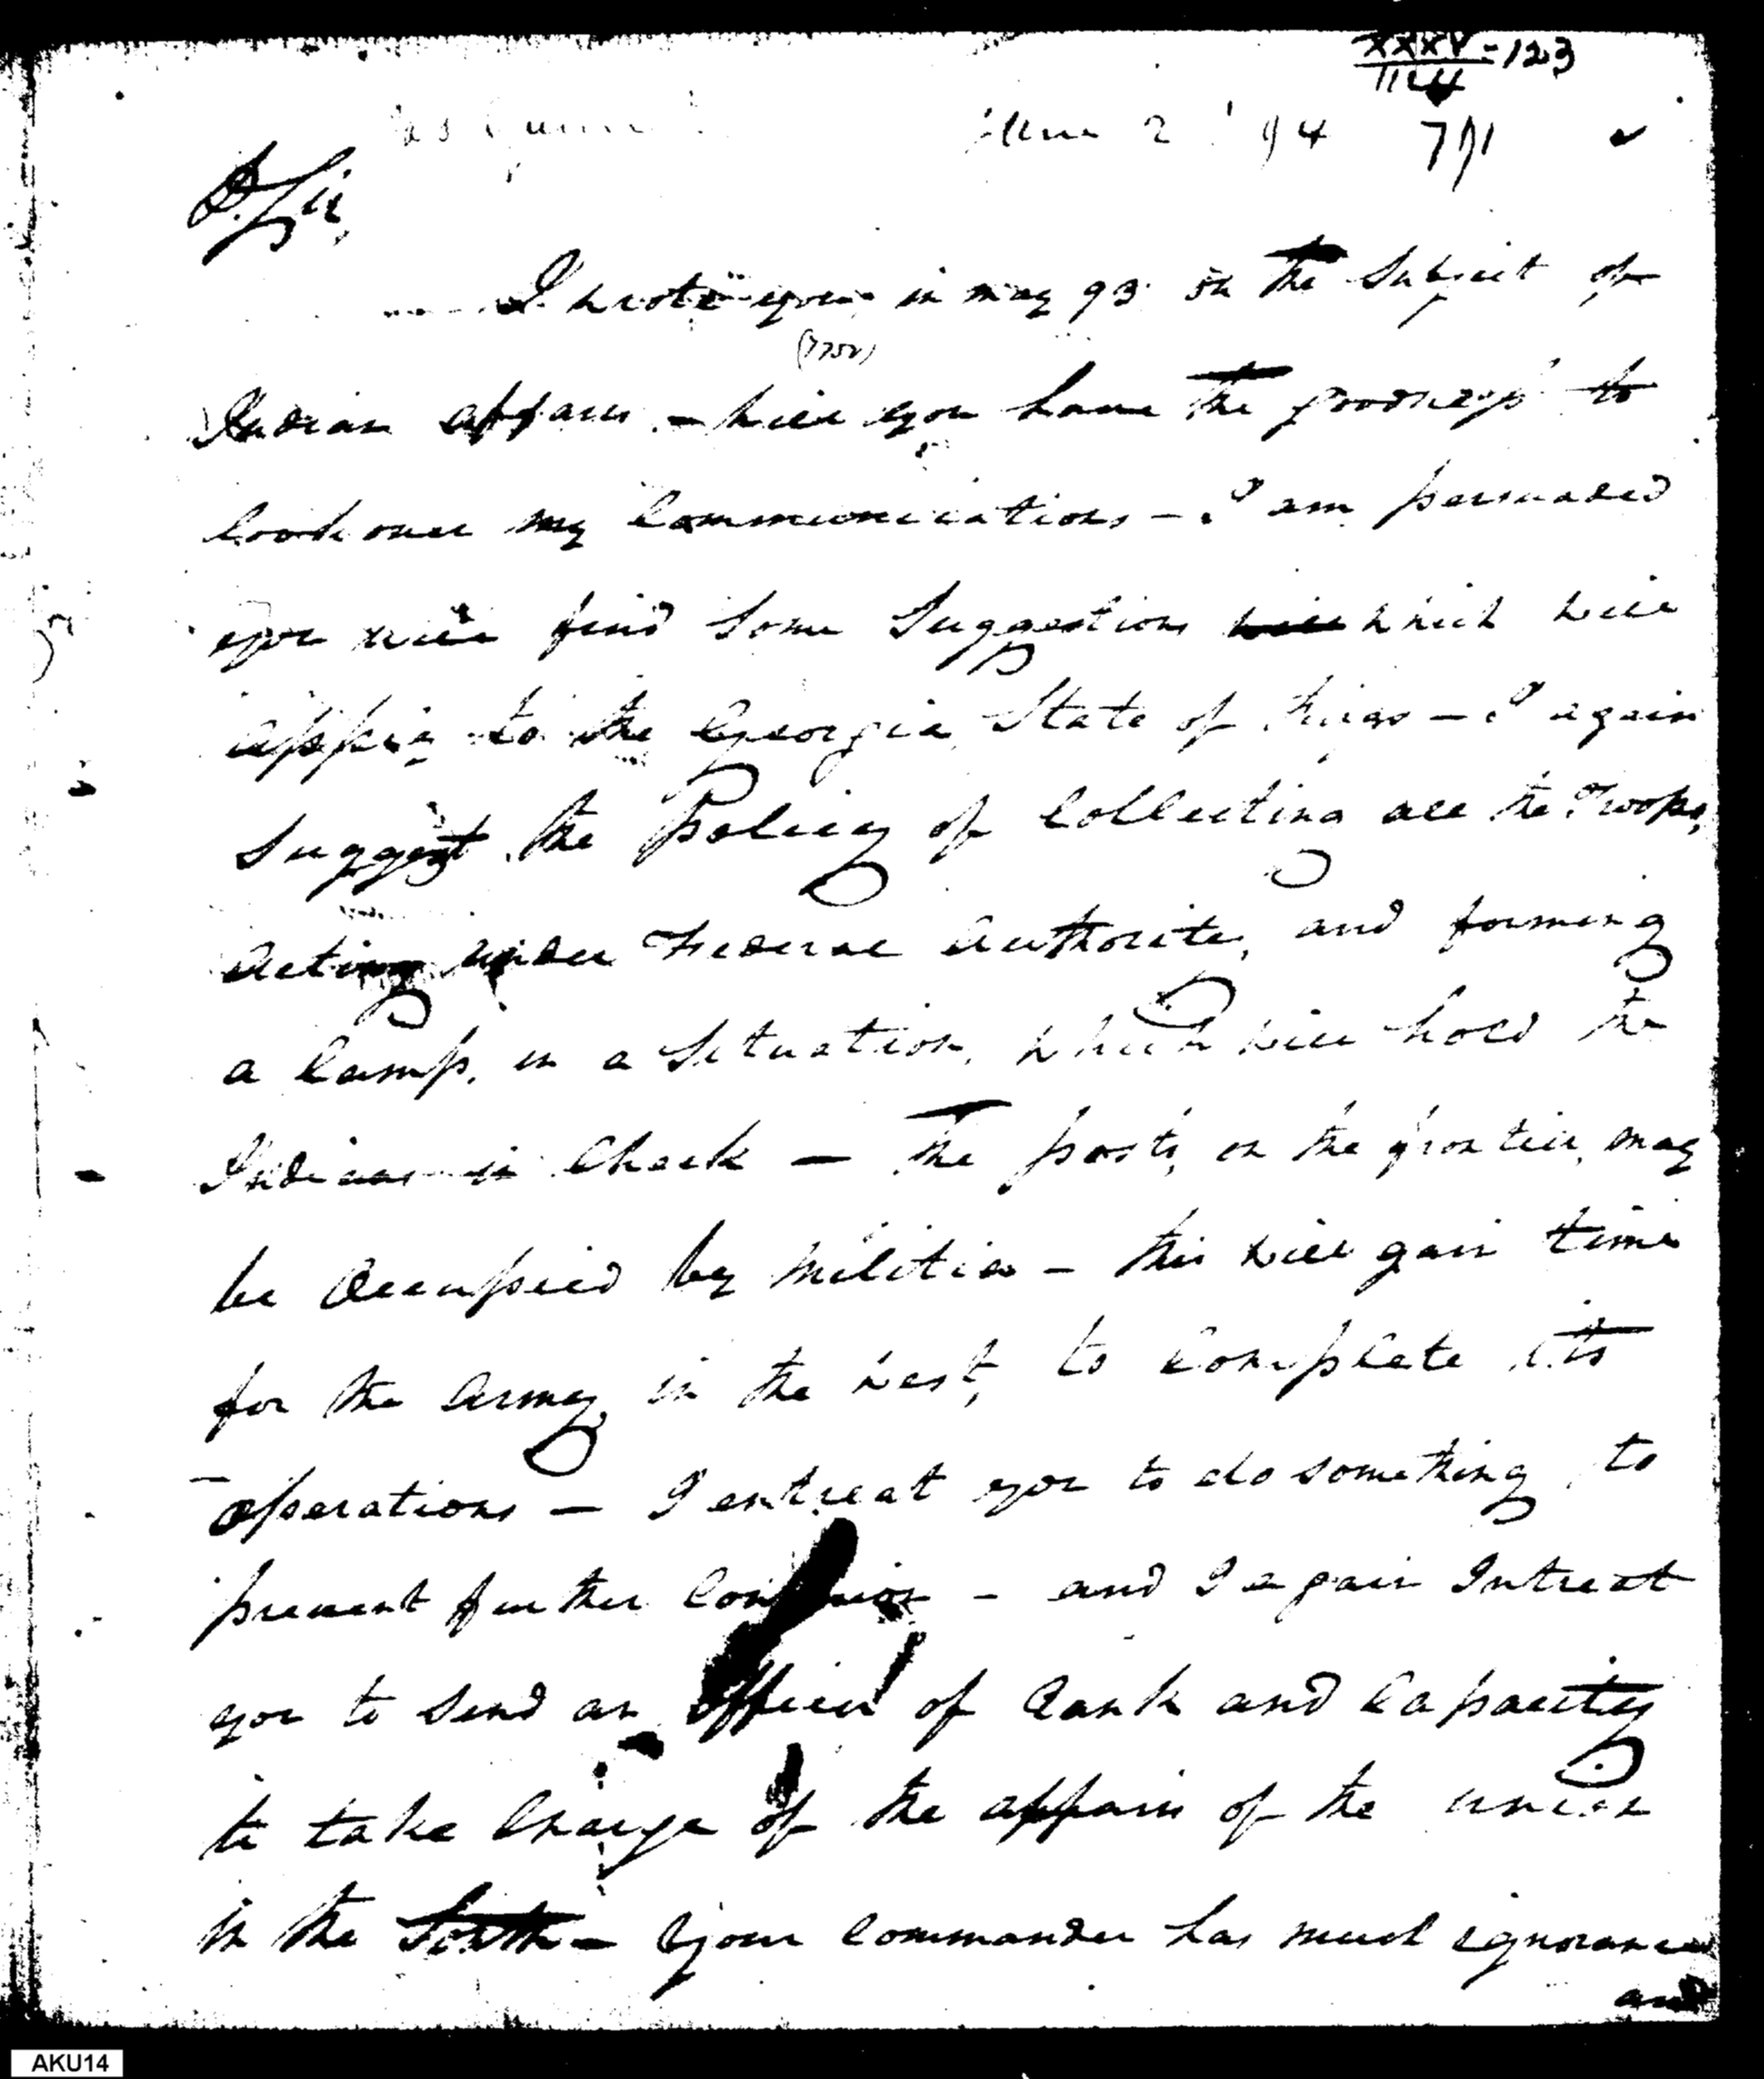 XXXV-123
1124
June 2 '94 791
D. Sir,
I wrote you in may 93 on the Subject of
(1752)
Indian affairs - will you have the goodness to
look over my Communications - I am persuaded
you will find some Suggestions will which will
apply to the Georgia State of things - I again
Suggest the Policy of Collecting all the Troops,
Acting under Federal Authority, and forming
a Camp, in a Situation, which will hold the
Indians in Check - The posts, on the frontier, may
be Occupied by Militia - this will gain time
for the Army in the West, to Complete its
Operations - I entreat you to do something, to
prevent further Confusion - and I again Intreat
you to send an Officer of Rank and Capacity
to take Charge of the affairs of the union
in the South - Your Commander has much ignorance
and
AKU14